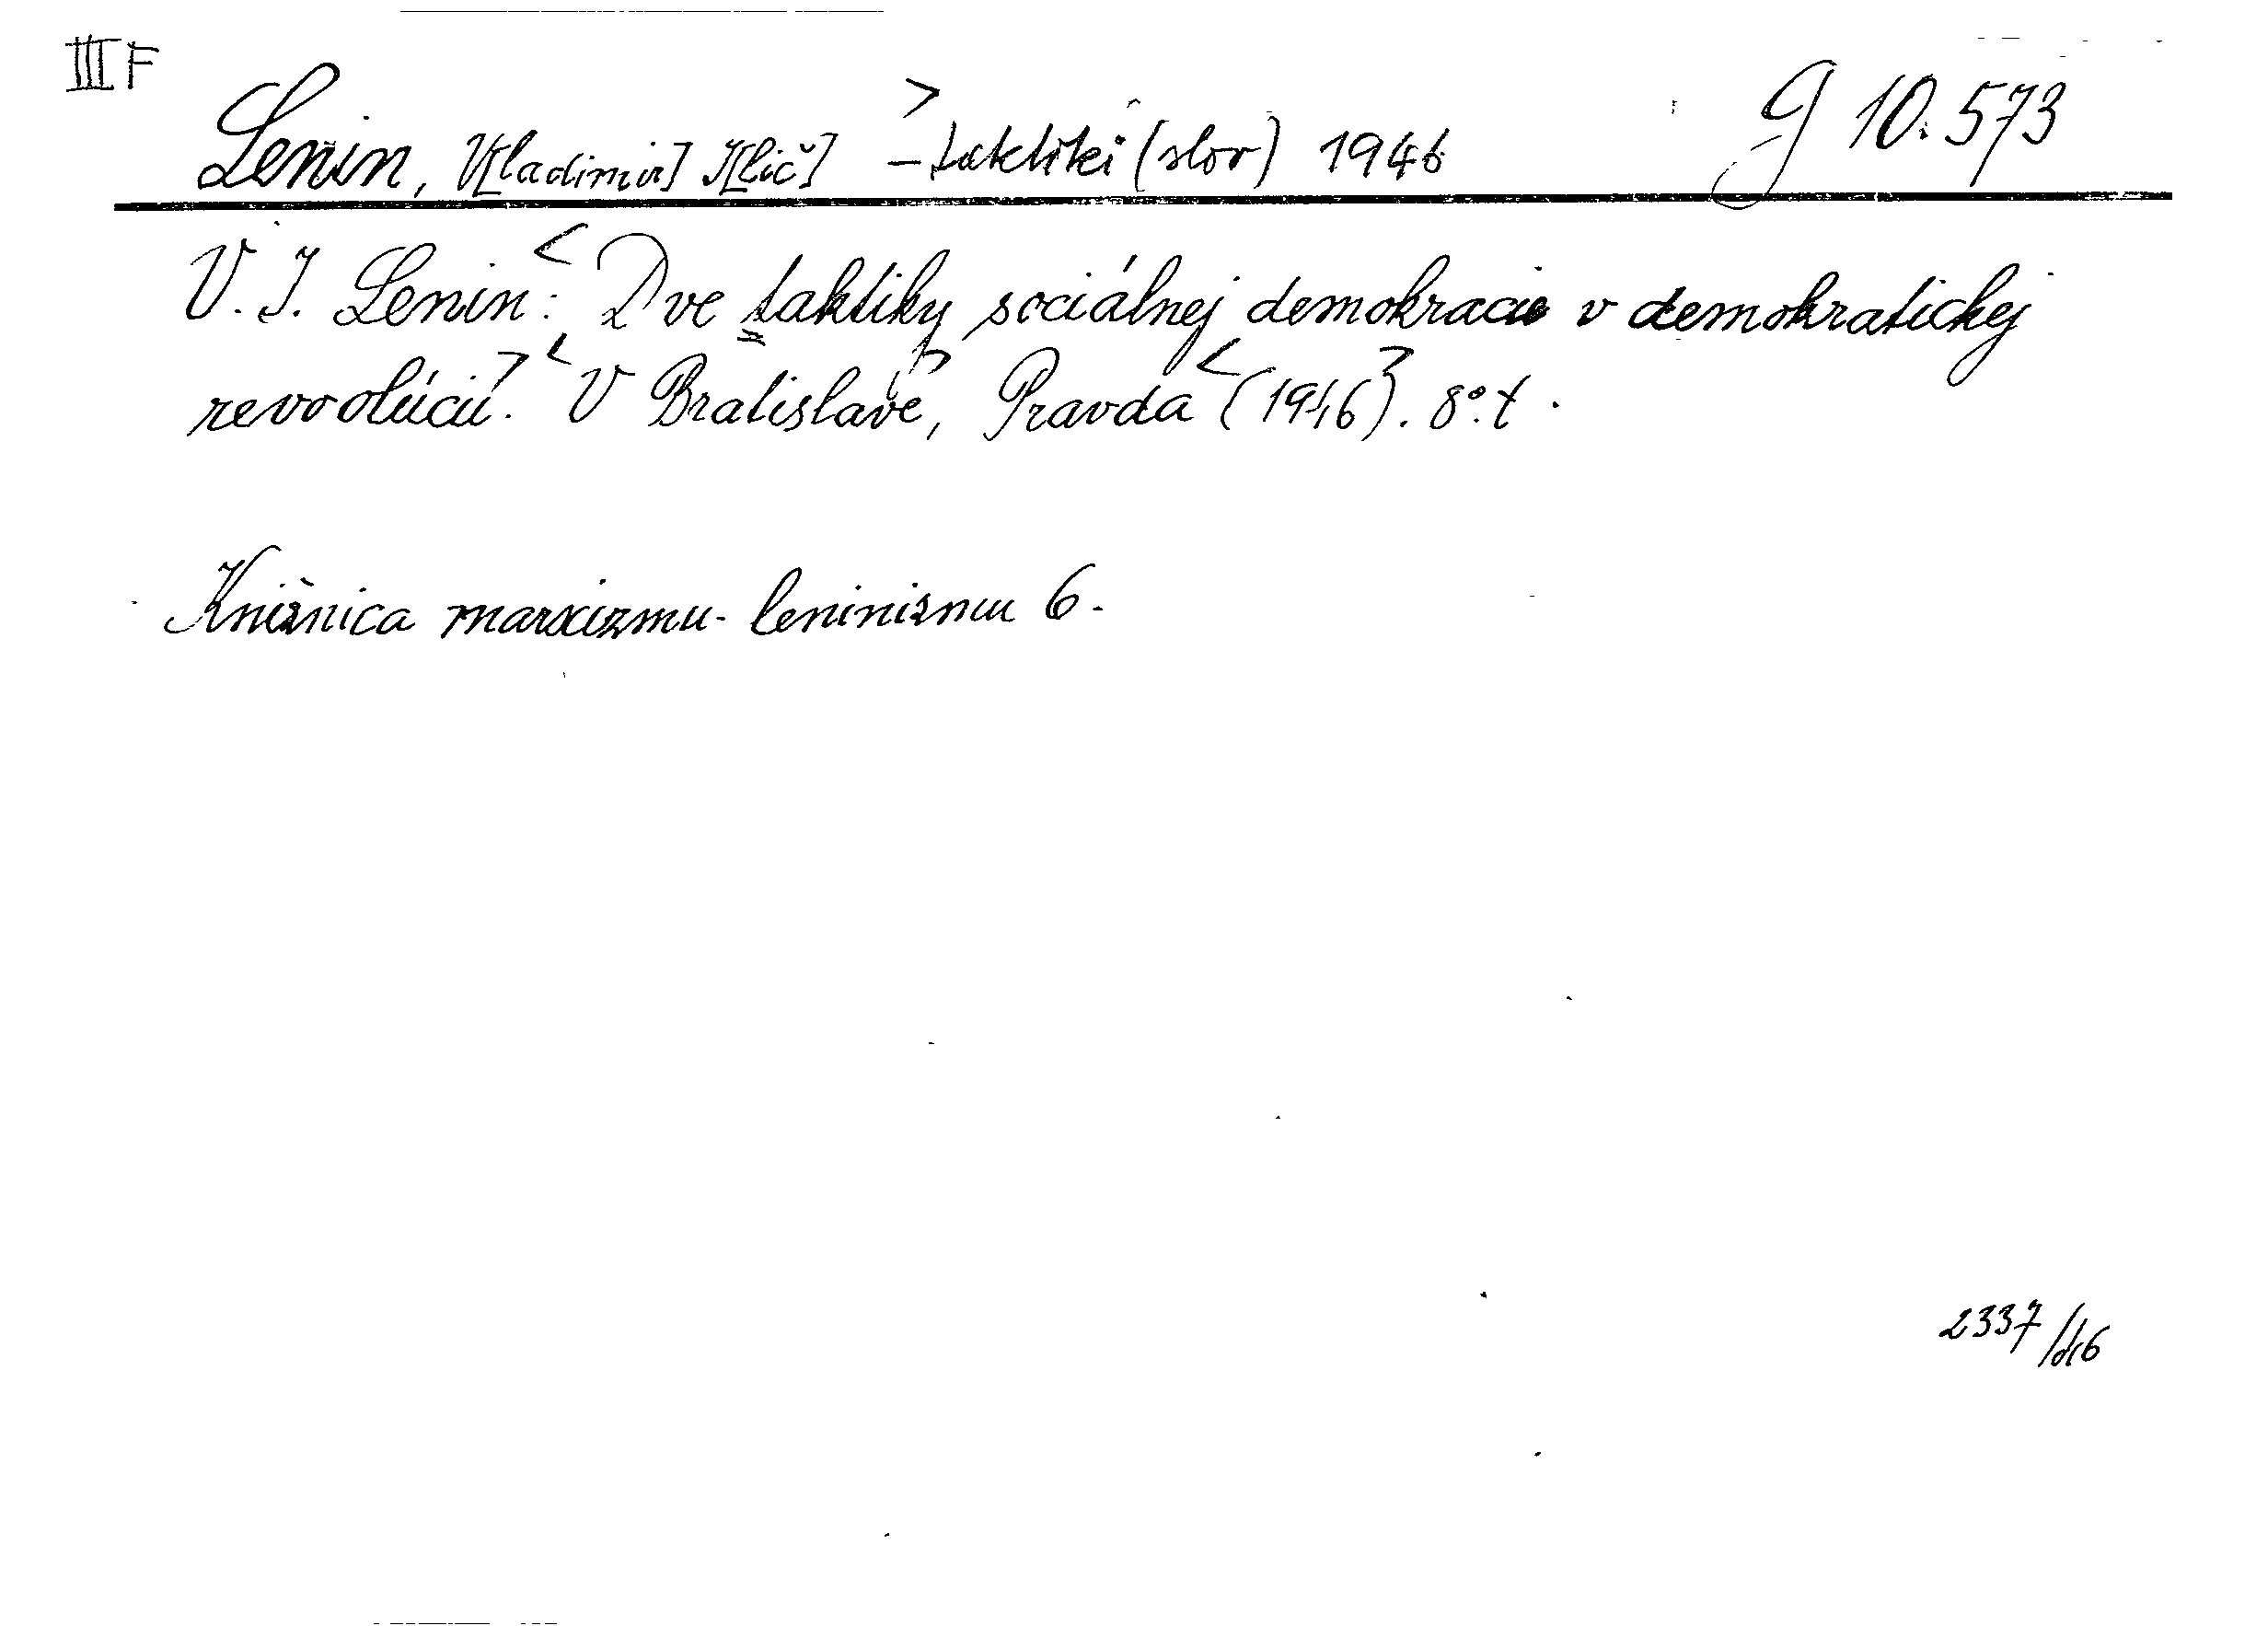 III F
Lenin, V[ladimir] I[lič] > – taktiki (slov) 1946 G 10.573
V. I. Lenin: < Dve taktiky sociálnej demokracie v demokratickej
revoolúcii >. < V Bratislave >, Pravda < (1946) >. 8°. t.
Knižnica marxizmu-leninizmu 6.
2337/46